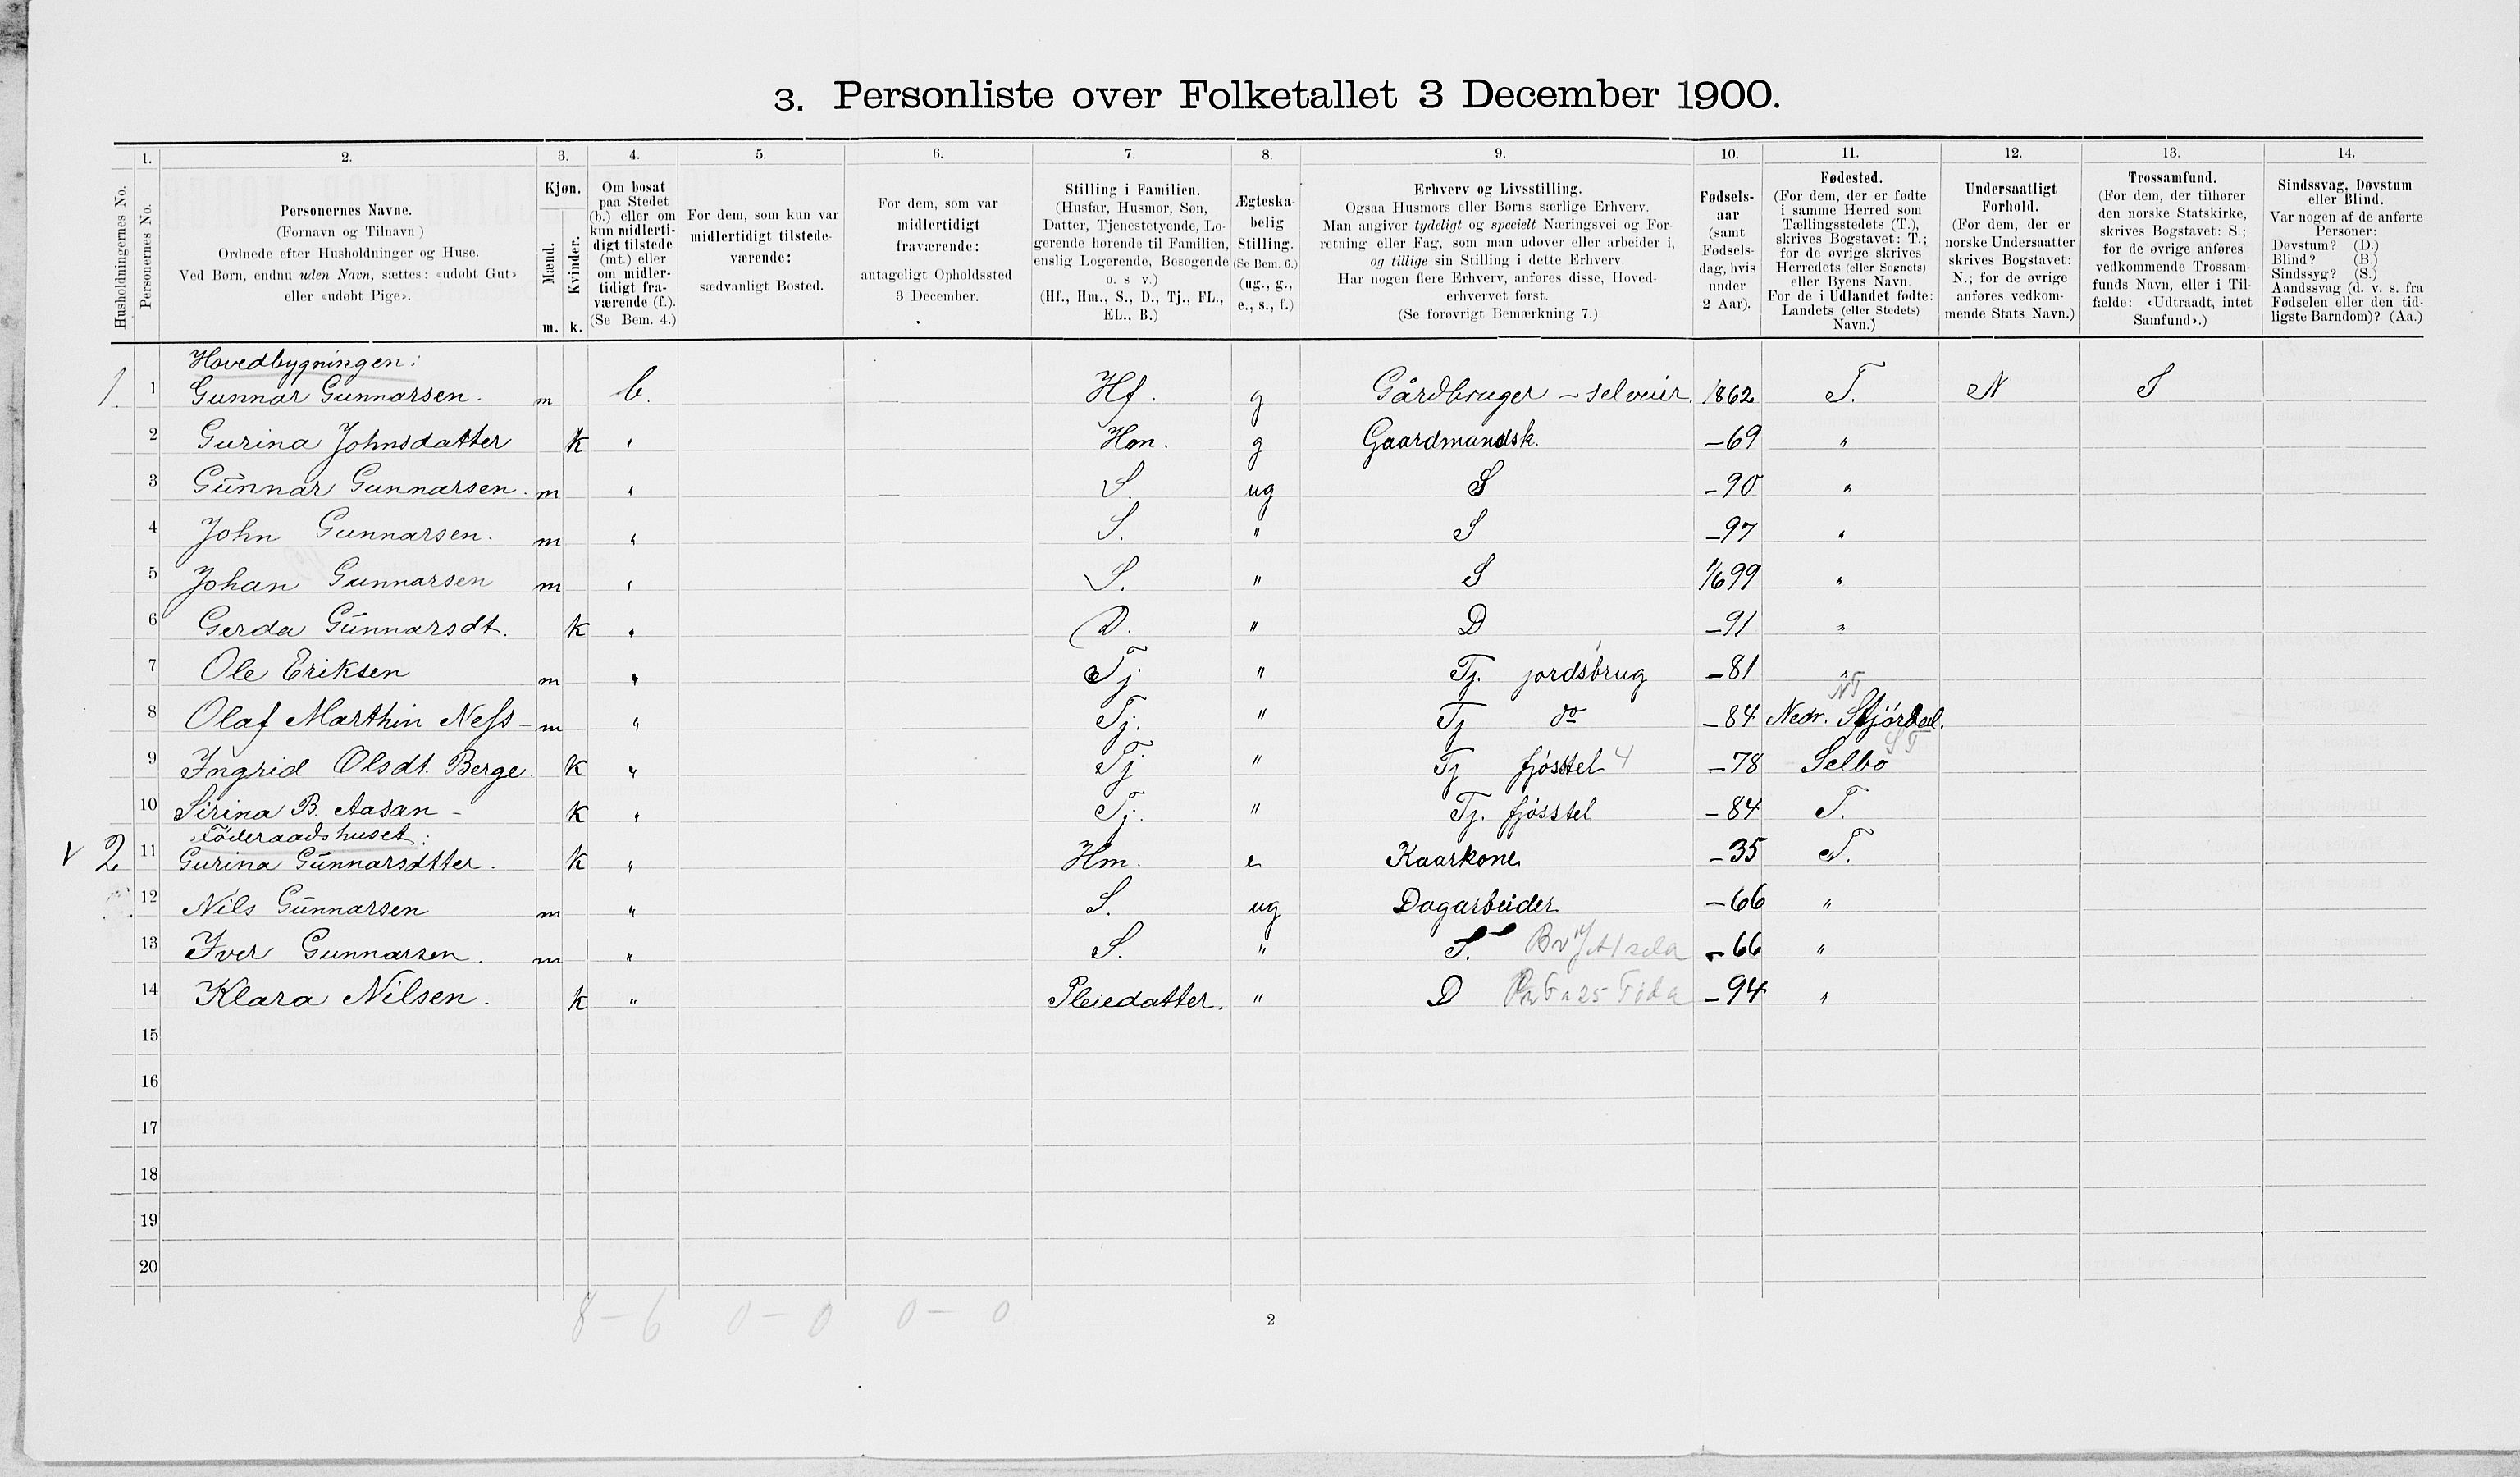 3. Personliste over Folketallet 3 December 1900.
Husholdningernes No.
1. Personernes No.
2. Personernes Navne.
(Fornavn og Tilnavn)
Ordnede efter Husholdninger og Huse.
Ved Børn, endnu uden Navn, sættes: «udøbt Gut»
eller «udøbt Pige».
3. Kjøn.
Mænd. Kvinder.
m. k.
4. Om bosat
paa Stedet
(b.) eller om
kun midlerti-
digt tilstede
(mt.) eller
om midler-
tidigt fra-
værende (f.).
(Se Bem. 4.)
5. For dem, som kun var
midlertidigt tilstede-
værende:
sædvanligt Bosted.
6. For dem, som var
midlertidigt
fraværende:
antageligt Opholdssted
3 December.
7. Stilling i Familien.
(Husfar, Husmor, Søn,
Datter, Tjenestetyende, Lo-
gerende hørende til Familien,
enslig Logerende, Besøgende
o. s v.)
(Hf., Hm., S., D., Tj., FL.,
EL., B.)
8. Ægteska-
belig
Stilling.
(Se Bem. 6.)
(ug., g.,
e., s., f.)
9. Erhverv og Livsstilling.
Ogsaa Husmors eller Børns særlige Erhverv.
Man angiver tydeligt og specielt Næringsvei og For-
retning eller Fag, som man udøver eller arbeider i,
og tillige sin Stilling i dette Erhverv.
Har nogen flere Erhverv, anføres disse, Hoved-
erhvervet først.
(Se forøvrigt Bemærkning 7.)
10. Fødsels-
aar
(samt
Fødsels-
dag, hvis
under
2 Aar).
11. Fødested.
(For dem, der er fødte
i samme Herred som
Tællingsstedets (T.),
skrives Bogstavet: T.;
for de øvrige skrives
Herredets (eller Sognets)
eller Byens Navn.
For de i Udlandet fødte:
Landets (eller Stedets)
Navn.)
12. Undersaatligt
Forhold.
(For dem, der er
norske Undersaatter
skrives Bogstavet:
N.; for de øvrige
anføres vedkom-
mende Stats Navn.)
13. Trossamfund.
(For dem, der tilhører
den norske Statskirke,
skrives Bogstavet: S.;
for de øvrige anføres
vedkommende Trossam-
funds Navn, eller i Til-
fælde: «Udtraadt, intet
Samfund».)
14. Sindssvag, Døvstum
eller Blind.
Var nogen af de anførte
Personer:
Døvstum? (D.)
Blind? (B.)
Sindssyg? (S.)
Aandssvag (d. v. s. fra
Fødselen eller den tid-
ligste Barndom)? (Aa.)
Hovedbygningen:
1 1 Gunnar Gunnarsen. m b. Hf. g Gårdbruger - selveier. 1862 T. N S
2 Gurina Johnsdatter k " Hm. g Gaardmandsk. -69 "
3 Gunnar Gunnarsen. m " S. ug S -90 "
4 John Gunnarsen. m " S. " S -97 "
5 Johan Gunnarsen m " S. " S 1/6 99 "
6 Gerda Gunnarsdt. k " D. " D -91 "
7 Ole Eriksen m " Tj " Tj. jordsbrug -81 "
NT
8 Olaf Marthin Ness - m " Tj. " Tj do -84 Nedr. Stjórdal.
ST
9 Ingrid Olsdt. Berge. k " Tj " Tj fjósstel 4 -78 Selbo
10 Sirina B. Aasan - k " Tj. " Tj. fjósstel -84 T.
Föderaadshuset:
v 2 11 Gurina Gunnarsdtter. k " Hm. e Kaarkone -35 T.
12 Nils Gunnarsen m " S. ug Dagarbeider -66 "
13 Iver Gunnarsen. m " S. " S. -66 "
14 Klara Nilsen. k " Pleiedatter. " D -94 "
15
16
17
18
19
20
8 - 6 0 - 0 0 - 0
2